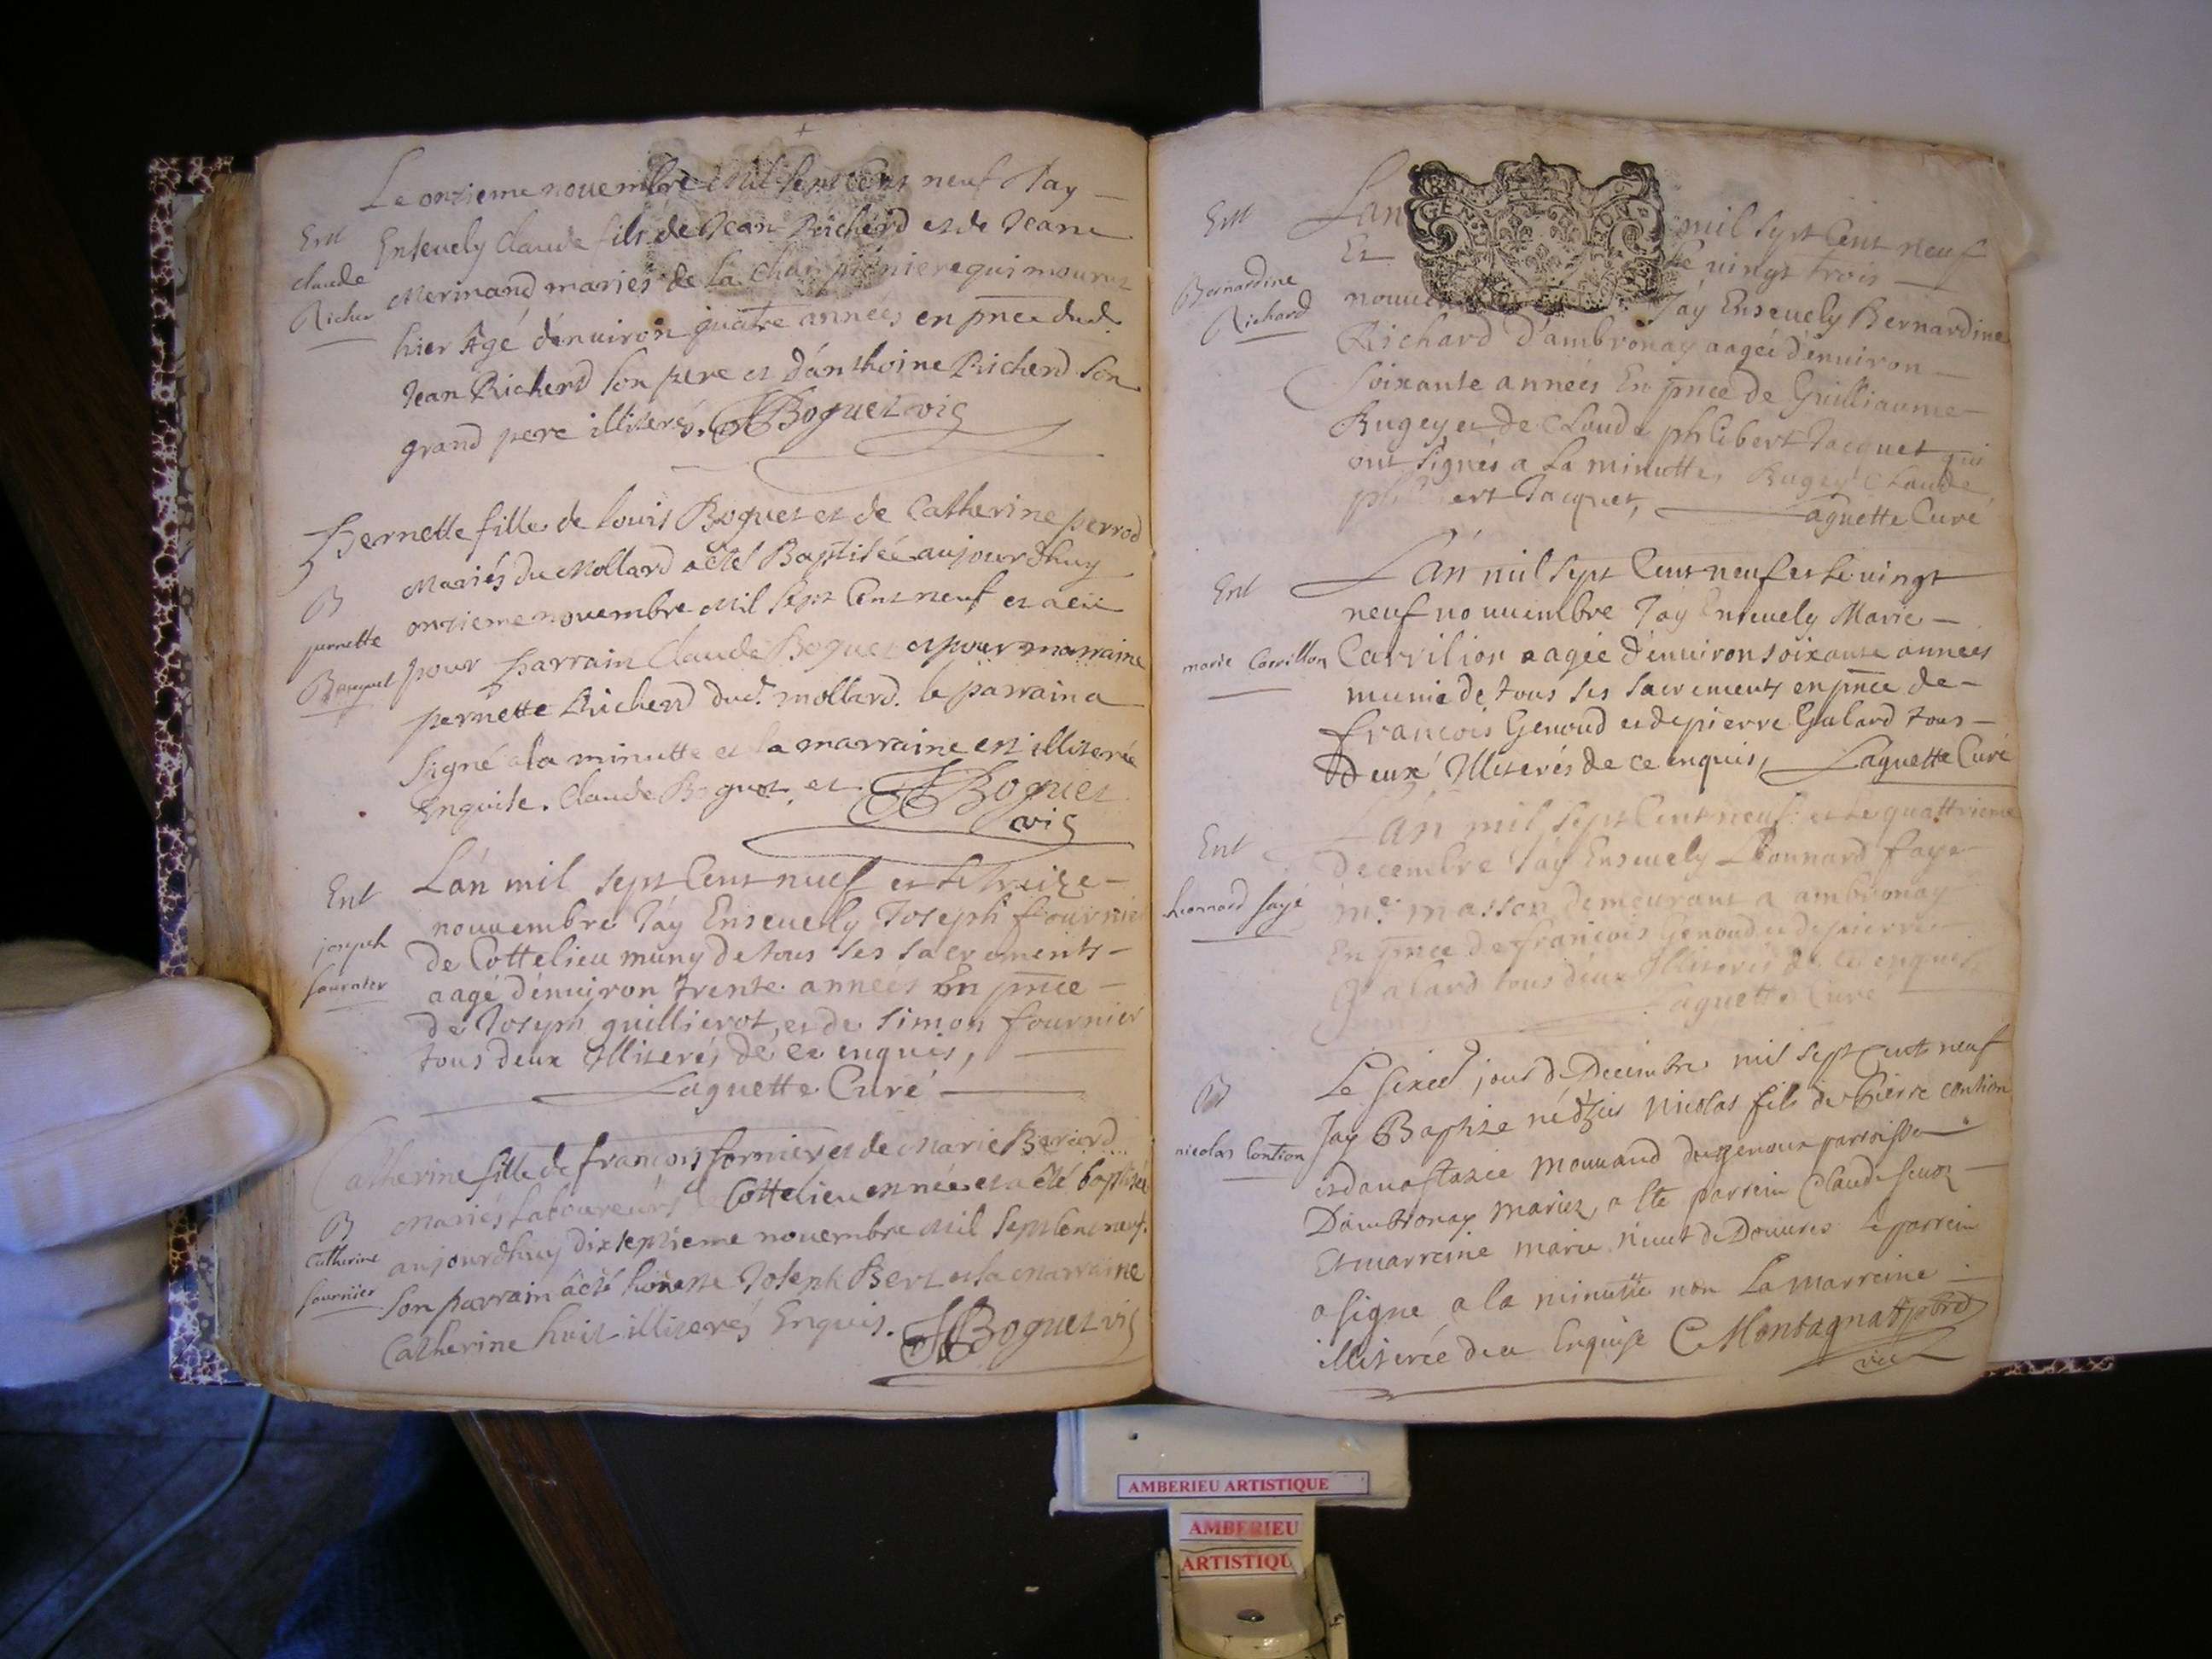 Le onzieme nouembre mil sept Cens neuf Jay
Ent
claude
Richer
Enseuely Claude fils de Jean Richerd et de Jeane
Merinand mariés de la qui mourut
hier Agé dénuiron quatre années en pnce dud.
Jean Richerd son pere et dánthoine Richerd son
grand pere illiterés. Boguet vic
B
pernette
Boguet
Pernette fille de louis Boguet et de Catherine perrod
Mariés du Mollard a été Baptisée aujourdhuy
onzieme nouembre Mil Sept Cent neuf et a eü
pour Parrain Claude Boguet et pour marraine
pernette Richerd dud. mollard. le parrain a
signé a la minutte et la marraine est illiterée
Enquise. Claude Boguet, et Boguet
vic
Ent
joseph
fournier
Lán mil sept Cent neuf et le treize
nouuembre Jáy Enseuely Joseph fournier
de Cottelieu muny de tous ses sacrements
aagé dénuiron trente années En pnce
de Joseph guillierot, et de Simon fournier
tous deux Illiterés de ce enquis,
Laguette Curé
B
Catherine
fournier
Catherine fille de françois fornier et de Marie Berard
Mariés Laboureurs Cottelieu est née et a été baptisée
aujourdhuy dixseptieme nouembre Mil Sept Cent neuf.
Son parrain a été honeste Joseph Bert et la Marraine
Catherine huit illiterés Enquis. Boguet vic
Ent
Bernardine
Richard
Lan mil sept Cent neuf
Et le vingt trois
Jáy Enseuely Bernardine
Richard Dámbronay aagée dénuiron
soixante années En pnce de Guilliaume
Rugey et de Claude philibert Jacquet qui
ont signés a la minutte, Rugey Claude
Jacquet, Laguette Curé
Ent
marie Carrillon
Lán mil sept Cent neuf et le vingt
neuf nouuembre Jáy Enseuely Marie
Carrilion aagée dénuiron soixante années
munie de tous ses sacrements en pnce de
françois Genoud et de pierre Galard tous
deux Illiterés de ce enquis, Laguette Curé
Ent
Leonnard fayé
Lán mil sept Cent neuf et le quattrieme
decembre Jáy Enseuely Léonnard faye
me. masson demeurant a ambronay
En pnce de françois Genoud et de pierre
Galard tous deux Illiterés de ce enquis
Laguette Curé
B
nicolas Contion
Le jour de Decembre mil sept Cent neuf
Jay Baptize né Nicolas fils de Pierre contion
et danastazie Mouuand parroisse
Dámbronay mariez, a été parrein Claude
Et marreine marie de Douures le parrein
a signe a la minutte non La marreine
illiterée de ce Enquise C Montagnat pbre
vic
AMBERIEU ARTISTIQUE
AMBERIEU
ARTISTIQU